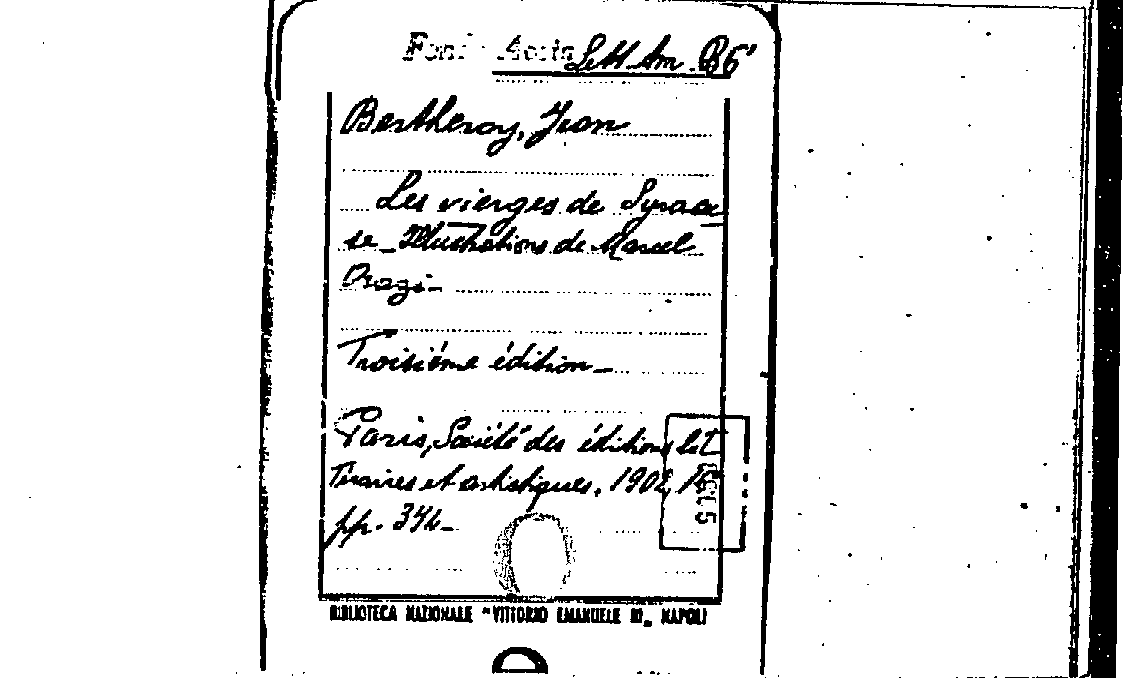 Fondo Aosta Lett. Am. B6'
Bertheroy, Jean
Les vierges de Syracu
se_ Illustrations de Marcel
Orazi_
Troisiéme édition_
Paris, Société des éditions lit
téraires et artistiques, 1902,
pp. 346_
BIBLIOTECA NAZIONALE "VITTORIO EMANUELE III„ NAPOLI